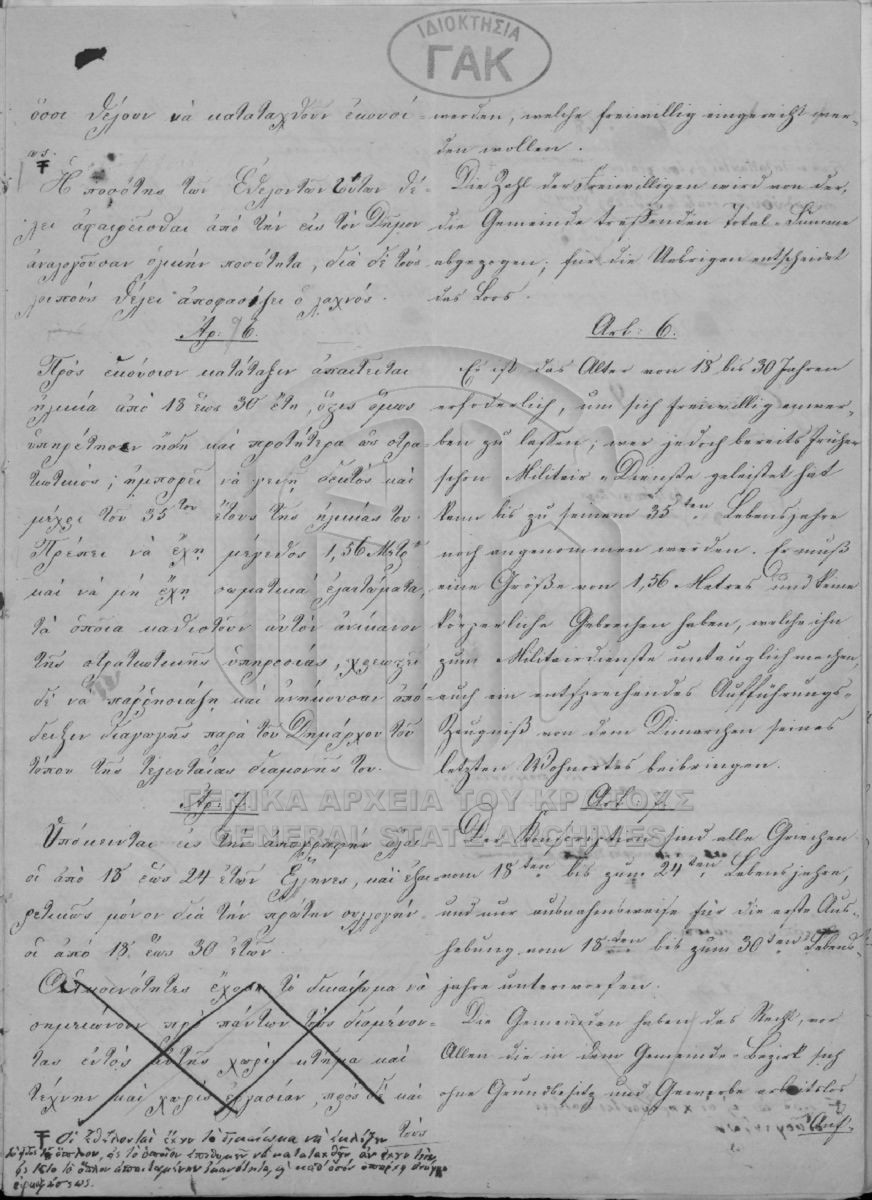 ΙΔΙΟΚΤΗΣΙΑ
ΓΑΚ
ὅσοι θέλουν νὰ καταταχθοῦν ἑκουσί-
ως.
Ἡ ποσότης τῶν Ἐθελοντῶν τούτων θέ-
λει ἀφαιρεῖσθαι ἀπὸ τὴν εἰς τὸν Δῆμον
ἀναλογοῦσαν ὁλικὴν ποσότητα, διὰ δὲ τοὺς
λοιποὺς θέλει ἀποφασίζει ὁ λαχνός.
Ἄρ: 6.
Πρὸς ἑκούσιον κατάταξιν ἀπαιτεῖται
ἡλικία ἀπὸ 18 ἕως 30 ἔτη, ὅςις ὅμως
ὑπηρέτησεν ἤδη καὶ προτήτερα ὡς στρα-
τιωτικός; ἠμπορεῖ νὰ γενῇ δεκτὸς καὶ
μέχρι τοῦ 35του ἔτους τῆς ἡλικίας του.
Πρέπει νὰ ἔχῃ μέγεθος 1,56 Μετρ
καὶ νὰ μὴ ἔχῃ σωματικὰ ἐλαττώματα,
τὰ ὁποῖα καθιστοῦν αὐτὸν ἀνίκανον
τῆς στρατιωτικῆς ὑπηρεσίας, χρεωςεῖ
δὲ νὰ παρρησιάσῃ καὶ ἀνήκουσαν ἀπό-
δειξιν διαγωγῆς παρὰ τοῦ Δημάρχου τοῦ
τόπου τῆς τελευταίας διαμονῆς του.
Ἄρ: 7.
Ὑπόκεινται εἰς τὴν ἀπογραφὴν ὅλοι
οἱ ἀπὸ 18 ἕως 24 ἐτῶν Ἕλληνες, καὶ ἐξαι-
ρετικῶς μόνον διὰ τὴν πρώτην συλλογὴν
οἱ ἀπὸ 18 ἕως 30 ἐτῶν.
Αἱ κοινότητες ἔχουν τὸ δικαίωμα νὰ
σημειώνουν πρὸ πάντων τοὺς διαμένον-
τας ἐντὸς αὐτῆς χωρὶς κτῆμα καὶ
τέχνην καὶ χωρὶς ἐργασίαν, πρὸς δὲ καὶ
τοὺς
Οἱ ἐθελονταὶ ἔχουν τὸ δικαίωμα νὰ ἐκλέξουν
τὸ εἶδος τοῦ ὅπλου, εἰς τὸ ὁποῖον ἐπιθυμοῦν νὰ καταταχθοῦν, ἂν ἔχουν τὴν
εἰς τοῦτο τὸ ὅπλον ἀπαιτουμένην ἱκανότητα, καὶ καθ' ὅσον ὑπάρχει
werden, welche freiwillig eingereiht wer-
den wollen.
Die Zahl der Freiwilligen wird von der,
die Gemeinde treffenden Total-Summe
abgezogen; für die Uebrigen entscheidet
das Loos.
Art: 6.
Es ist das Alter von 18 bis 30 Jahren
erforderlich, um sich freiwillig anwer-
ben zu lassen; wer jedoch bereits früher
schon Militair-Dienste geleistet hat
kann bis zu seinem 35ten Lebensjahre
noch angenommen werden. Er muß
eine Größe von 1,56 Metres und keine
körperliche Gebrechen haben, welche ihn
zum Militairdienste untauglich machen,
auch ein entsprechendes Aufführungs-
Zeugniß von dem Dimarchen seines
letzten Wohnortes beibringen.
Art 7.
Der Konscription sind alle Griechen
vom 18ten bis zum 24ten Lebensjahre,
und nur ausnahmsweise für die erste Aus-
hebung vom 18ten bis zum 30ten Lebens-
jahre unterworfen.
Die Gemeinden haben das Recht, vor
Allen die in dem Gemeinde-Bezirk sich
ohne Grundbesitz und Gewerbe arbeitslos
Auf-
ΓΕΝΙΚΑ ΑΡΧΕΙΑ ΤΟΥ ΚΡΑΤΟΥΣ
GENERAL STATE ARCHIVES